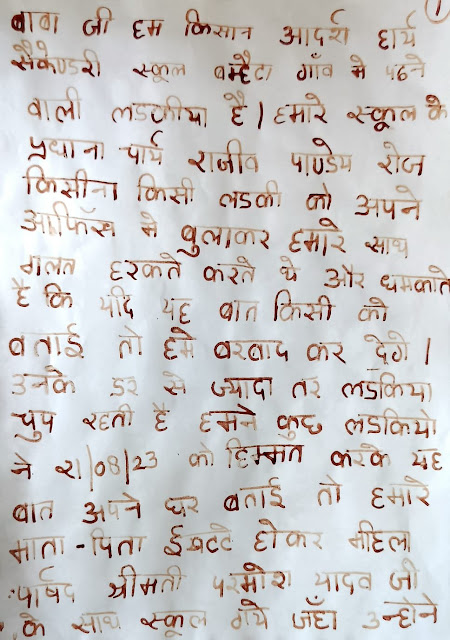 1
बाबा जी हम किसान आदर्श हार्य
सैकेण्डरी स्कूल बम्हैटा गाँव मे पढने
वाली लडकीया है। हमारे स्कूल के
प्रधाना चार्य राजीव पाण्डेय रोज
किसीना किसी लडकी को अपने
आफिस मे बुलाकर हमारे साथ
गलत हरकते करते थे और धमकाते
है कि यदि यह बात किसी को
बताई तो हमे बरबाद कर देगे।
उनके डर से ज्यादा तर लडकिया
चुप रहती है हमने कुछ लडकियो
ने 21/08/23 को हिम्मत करके यह
बात अपने घर बताई तो हमारे
माता-पिता ईखटटे होकर महिला
पार्षद श्रीमती यादव जी
के साथ स्कूल गये जँहा उन्होने